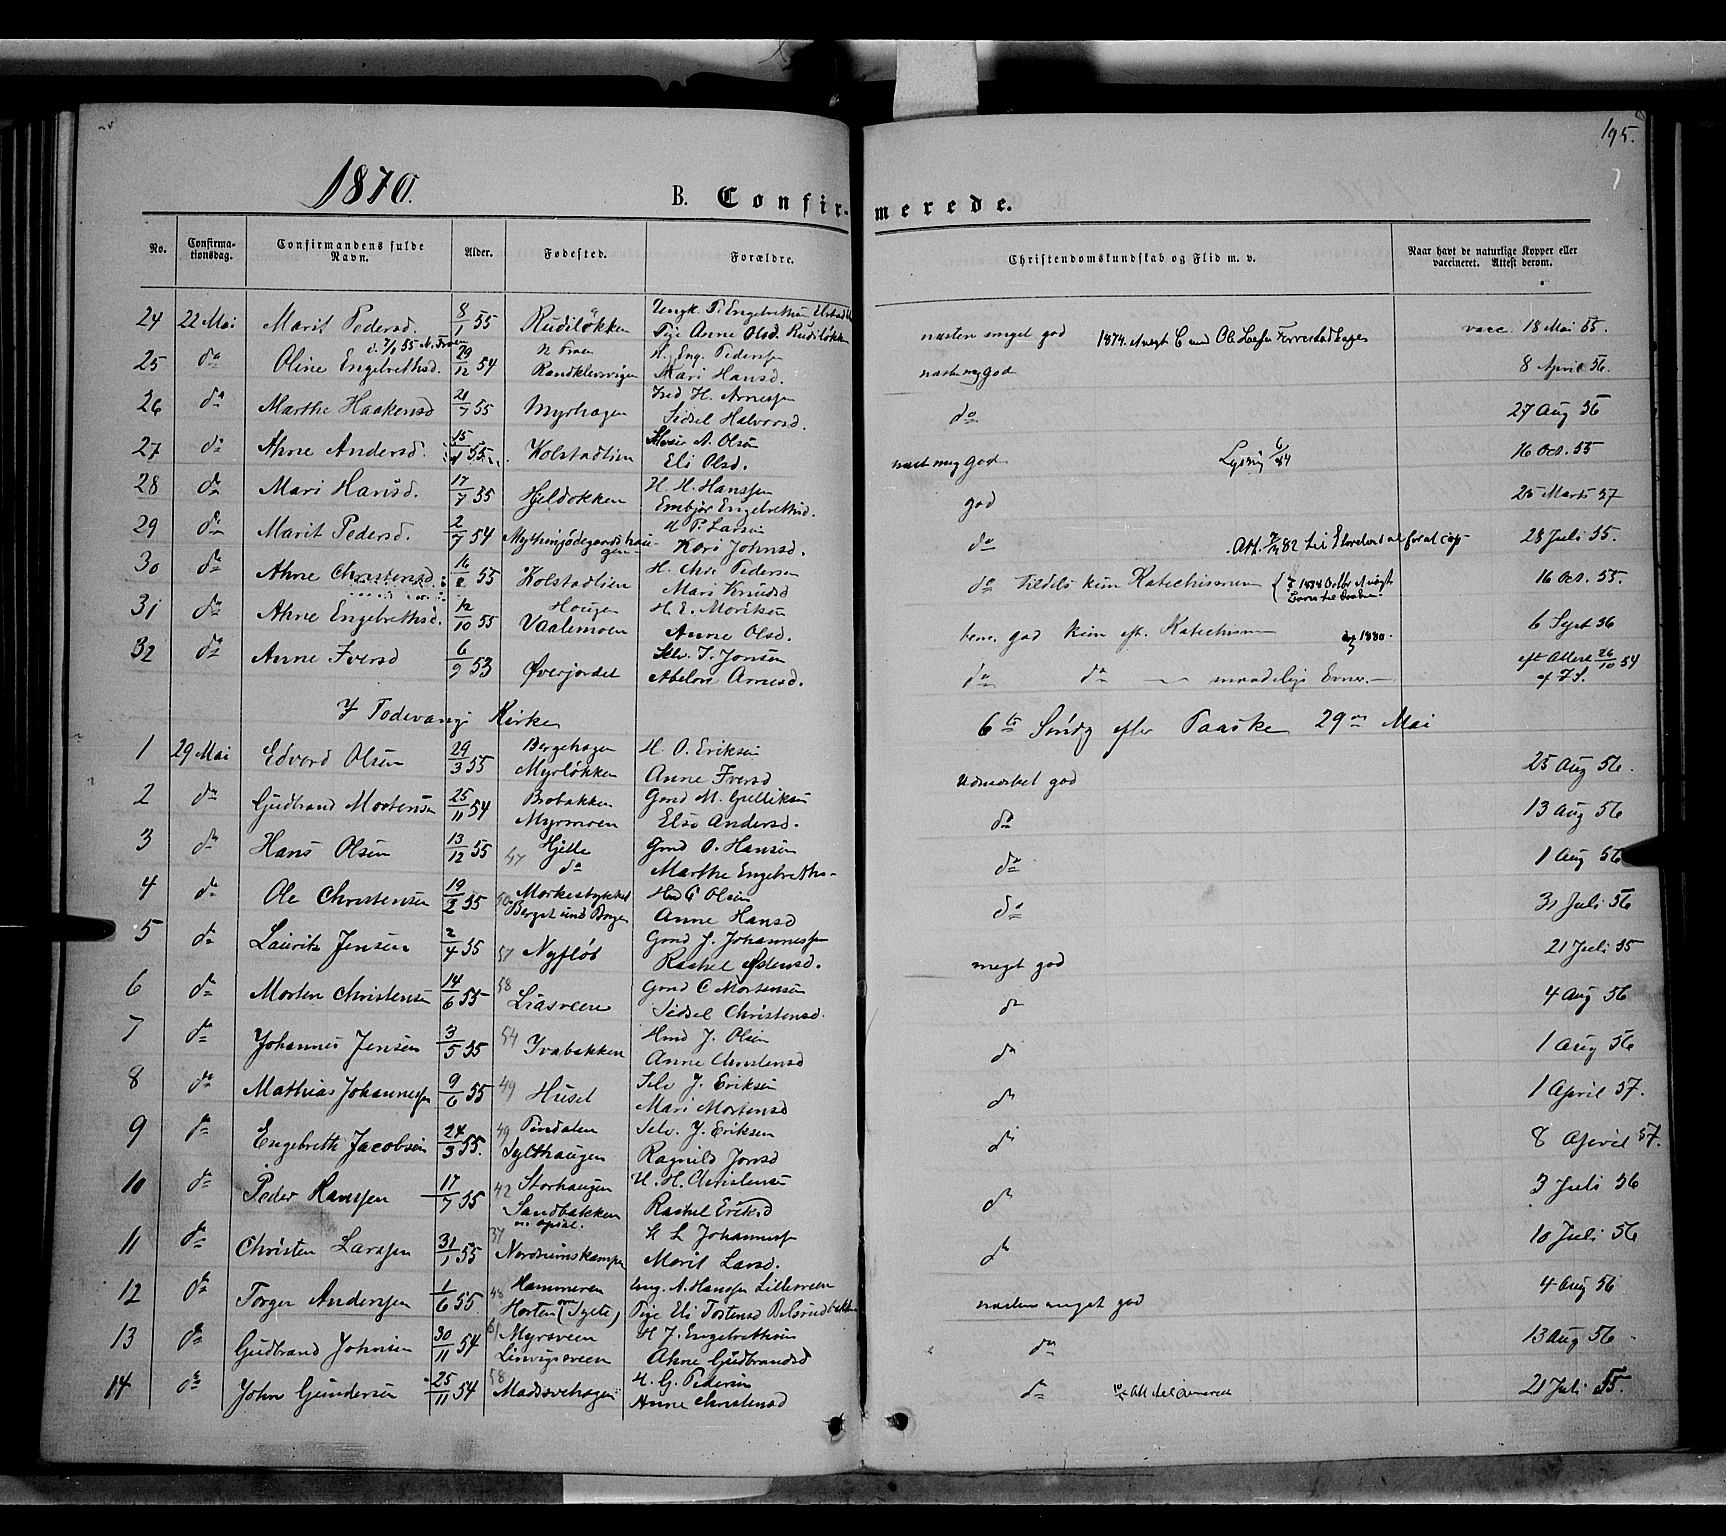 195.
1870.
B. Confir-merede.
No. Confirma-tionsdag. Confirmandens fulde Navn. Alder. Fødested. Forældre. Christendomskundskab og Flid m. v. Naar havt de naturlige Kopper eller vaccineret. Attest derom.
24 22 Mai Marit Pedersd. 8/1 55 Rudiløkken Ungk. P. Engebrethsen
Pige Anne Olsd. Rudiløkken næsten meget god 1874 vacc. 18 Mai 55.
25 do Oline Engebrethsd. 29/12 54 Randklevvigen H. Eng. Pedersen
Mari Hansd. næsten meg god 8 April 56.
26 do Marthe Haakensd 21/7 55 Myrhagen Ind H. Arnesen
Sidsel Halvorsd. do 27 Aug 56
27 do Ahne Andersd. 15/ 55 Kolstadlien A. Olsen
Eli Olsd. næst meg god 6/84 16 Oct. 55
28 do Mari Hansd. 17/7 55 Hjeldokken H. H. Hanssen
Embjør Engebrethsd. god 25 Marts 57
29 do Marit Pedersd. 2/7 54 P. Larsen
Kari Johnsd. do 28 Juli 55.
30 do Ahne Christensd 16/2 55 Kolstadlien H. Chr. Pedersen
Mari Knudsd do tildels kun Katechismen 16 Oct. 55.
31 do Ahne Engebrethsd. 12/10 55 Hougen
Vaalemoen H. E. Mortsen
Anne Olsd. temm. god kun eft. Katechismen 1880. 6 Sept 56
32 do Anne Iversd 6/9 53 Øverjordet Selv. I. Jonsen
Abelone Arnesd. do do maadelige Evner. eft Attest 26/10 54
I Fodevangs Kirke 6te Søndg efter Paaske 29de Mai
1 29 Mai Edvard Olsen 29/3 55 Bergehagen
Myrløkken H. O. Eriksen
Anne Iversd Udmærket god 25 Aug 56.
2 do Gudbrand Mortensen 25/11 54 Brobakken
Myrmoen Gmd M. Gulliksen
Else Andersd. do 13 Aug 56
3 do Hans Olsen 13/12 55 57 Hjelle
do Gmd O. Hansen
Marthe Engebrethsd do 1 Aug 56
4 do Ole Christensen 19/2 55 Mørkestykket
Berget und Borgen Hmd C Olsen
Anne Hansd do 31 Juli 56
5 do Lauritz Jensen 2/4 55 57 Nyfløt Gmd J. Johannessen
Rachel Ostensd. meget god 21 Juli 55
6 do Morten Christensen 14/6 55 58 Liasveen Gmd C Mortensen
Sidsel Christensd. do 4 Aug 56
7 do Johannes Jensen 3/5 55 54 Ivabakken Hmd J. Olsen
Anne Christensd do 1 Aug 56
8 do Mathias Johannessen 9/6 55 49 Huset Selv J. Eriksen
Mari Mortensd do 1 April 57.
9 do Engebreth Jacobsen 24/3 55. 49 Tindalen
Sylthaugen Selv. J. Eriksen
Ragnild Jonsd do 8 April 57.
10 do Peder Hanssen 17/7 55 42 Storhaugen
Sandbakken H. H. Christensen
Rachel Eriksd do 3 Juli 56
11 do Christen Larssen 31/1 55 37 Nordrumskampen H L Johannessen
Marit Larsd. do 10 Juli 56
12 do Torger Anderssen 1/6 55 48 Hammeren
Horten Ung. A. Hanssen Lillesveen
Pige Eli Tostensd næsten meget god 4 Aug 56
13 do Gudbrand Johnsen 30/11 54 61 Myrsveen
H J. Engebrethsen
Ahne Gudbrandsd do 13 Aug 56
14 do John Gundersen 25/11 54 58 Madssvehagen H. G. Pedersen
Anne Christensd do 21 Juli 55.